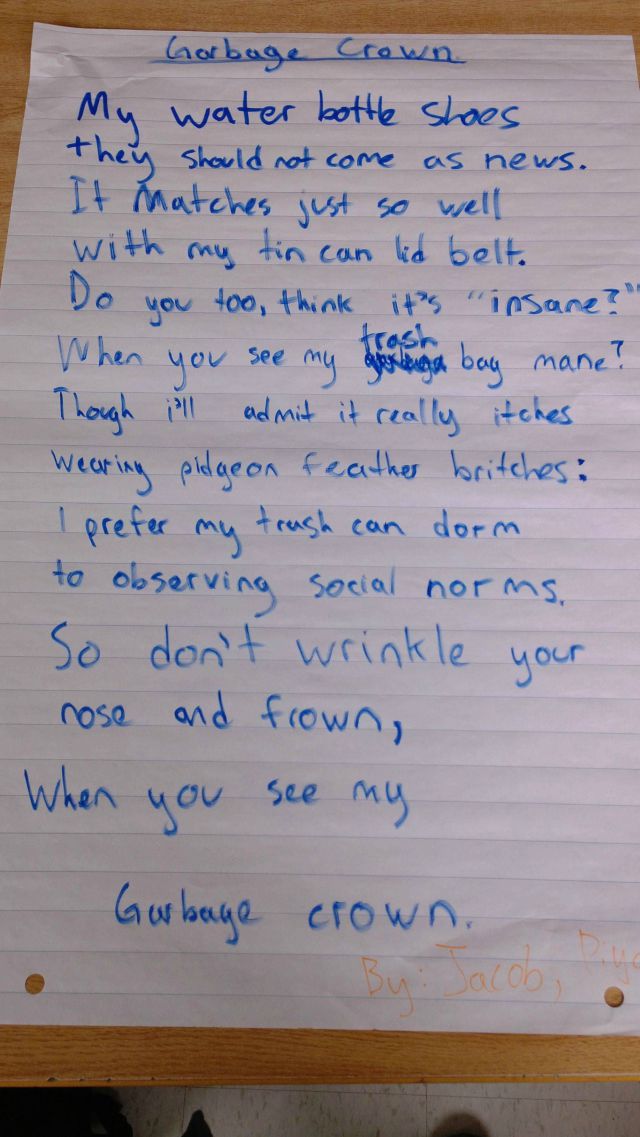 Garbage Crown
My water bottle shoes
they should not come as news.
It Matches just so well
with my tin can lid belt.
Do you too, think it's "insane?"
When you see my trash bag mane?
Though i'll admit it really itches
wearing pidgeon feather britches:
I prefer my trash can dorm
to observing social norms.
So don't wrinkle your
nose and frown,
When you see my
Garbage crown.
By: Jacob,